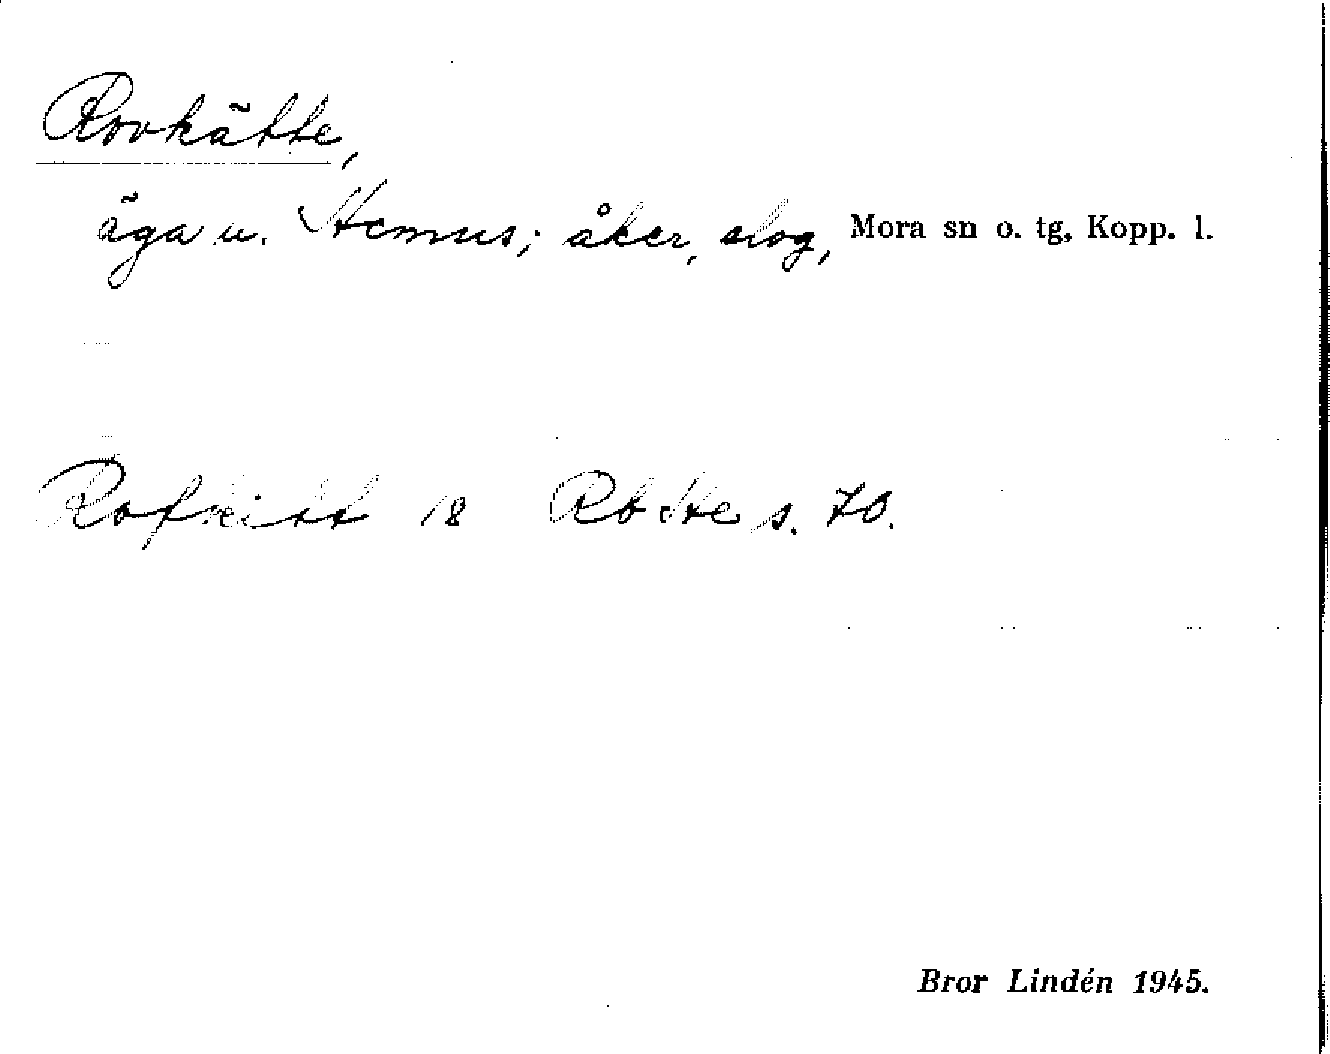 Rovkätte,
äga u. Hemus; åker, slog, Mora sn o. tg, Kopp. l.
Rofkitt 18 Rb dte s. 70.
Bror Lindén 1945.